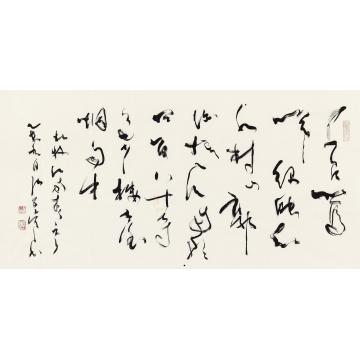 千里鶯
啼綠映紅
水村山郭
酒旗風南朝
四百八十寺
多少樓臺
烟雨中
杜牧江南春